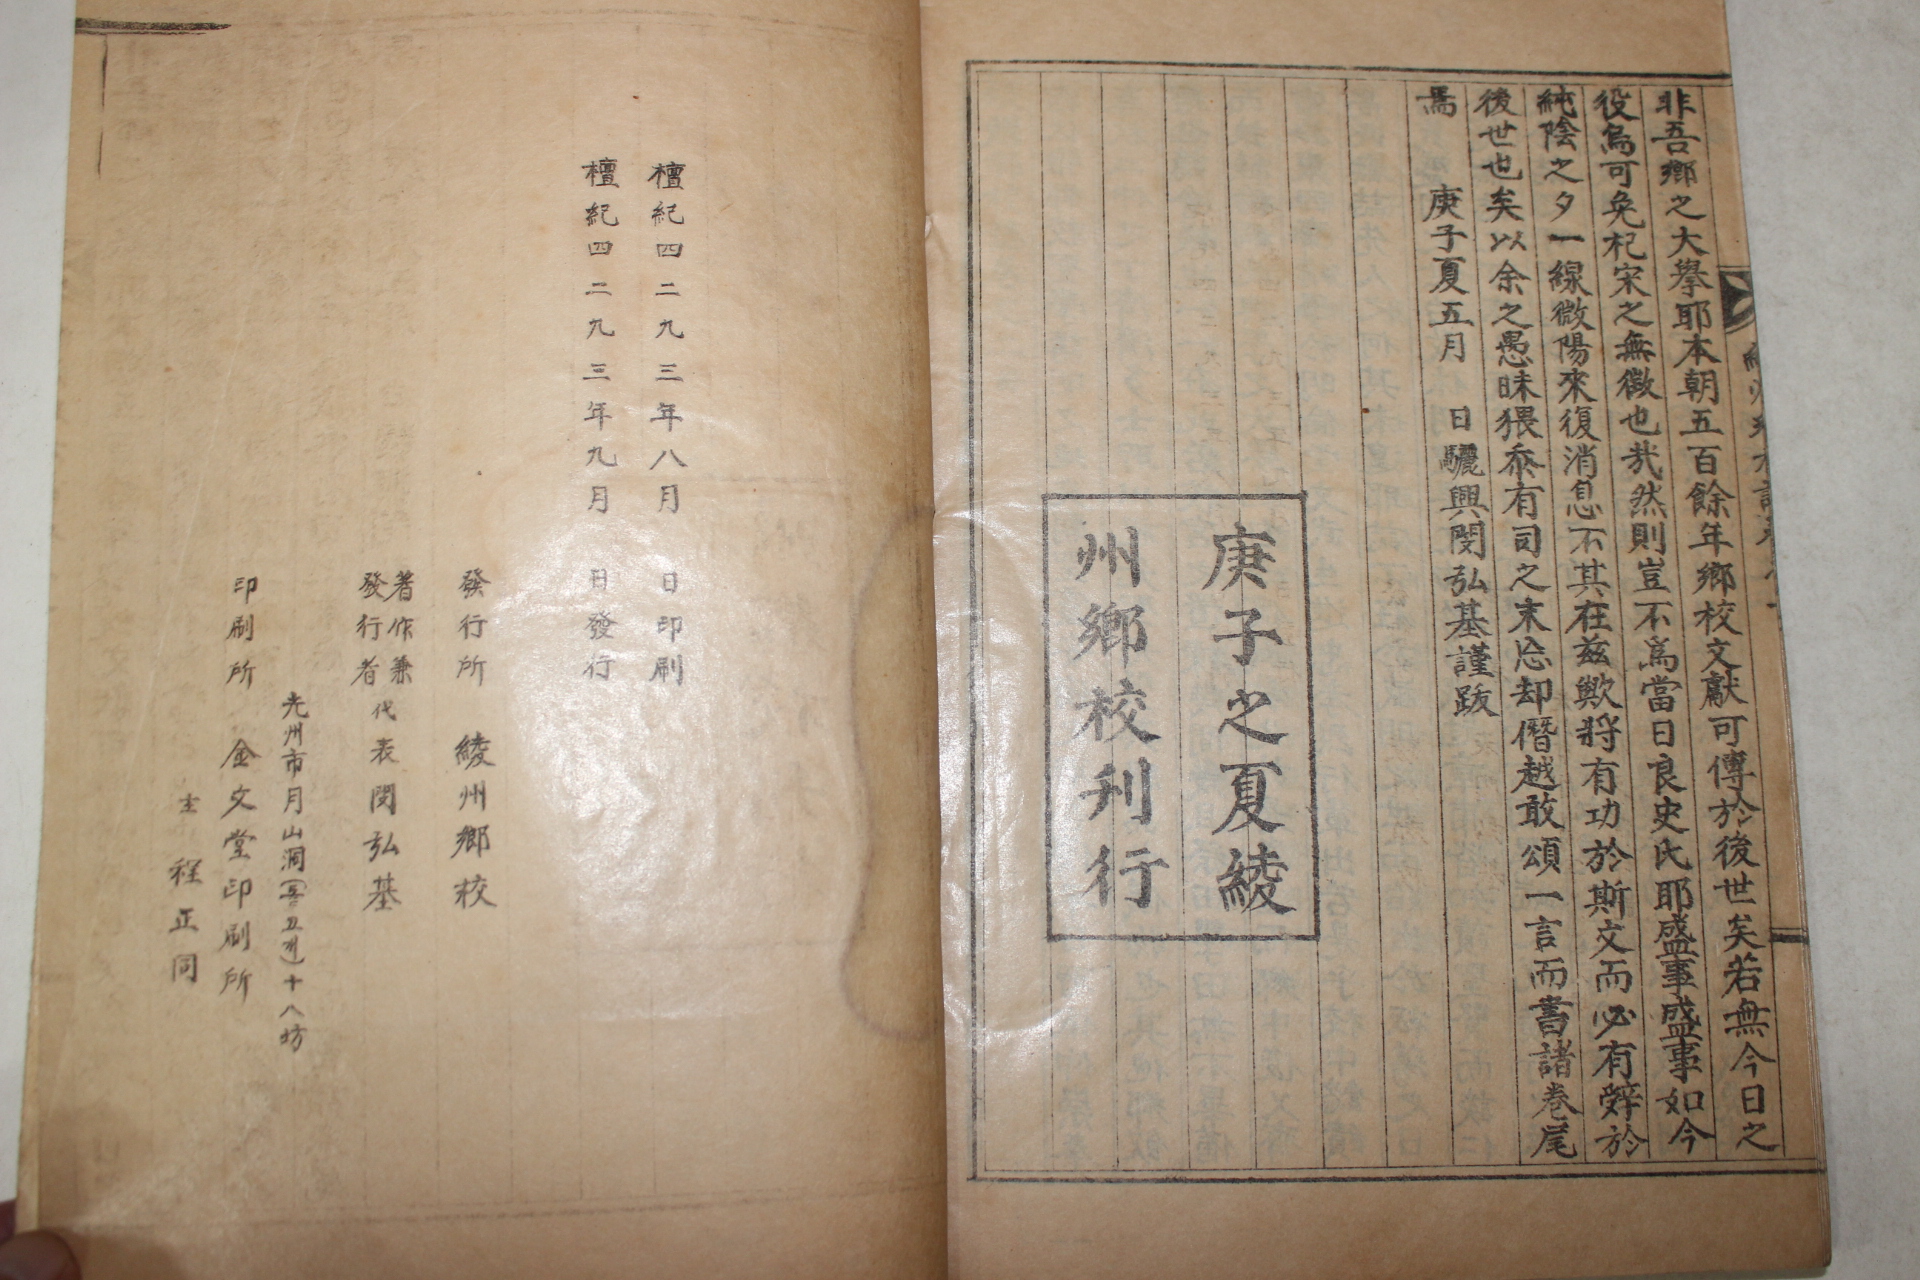 非吾鄉之大擧耶本朝五百餘年鄉校文獻可傳於後世矣若無今日之
役烏可免杞宋之無徵也哉然則豈不爲當日良史氏耶盛事盛事如今
純陰之夕一線微陽來復消息不其在茲歟將有功於斯文而必有辭於
後世也矣以余之愚昧猥忝有司之末忘却僭越敢頌一言而書諸卷尾
焉
庚子夏五月 日驪興閔弘基謹跋
庚子之夏綾
州鄉校刋行
檀紀四二九三年八月 日印刷
檀紀四二九三年九月 日發行
發行所 綾州鄉校
著作兼
發行者 代表閔弘基
光州市月山洞(五구)十八坊
印刷所 金文堂印刷所
主 程正同